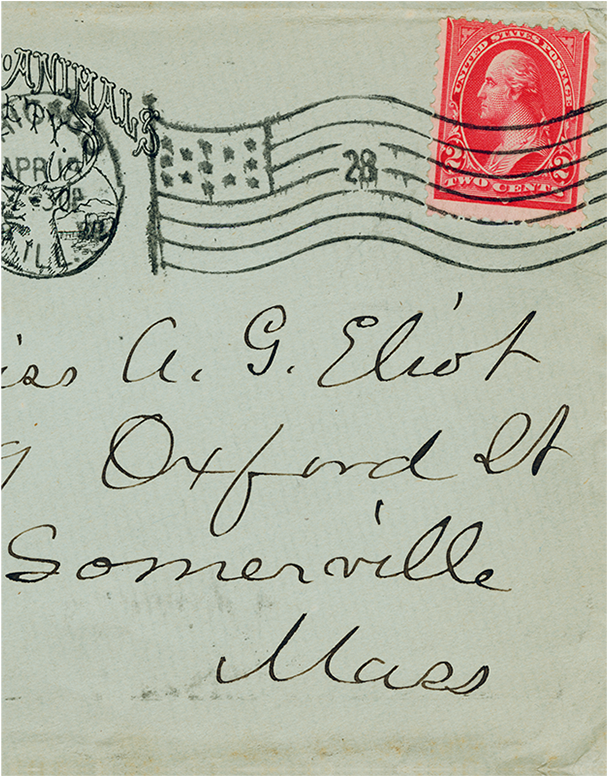 ANIMALS
APR 18
30P
ILL.
28
UNITED STATES POSTAGE
2 2
TWO CENTS
iss A. G. Eliot
9 Oxford St
Somerville
Mass